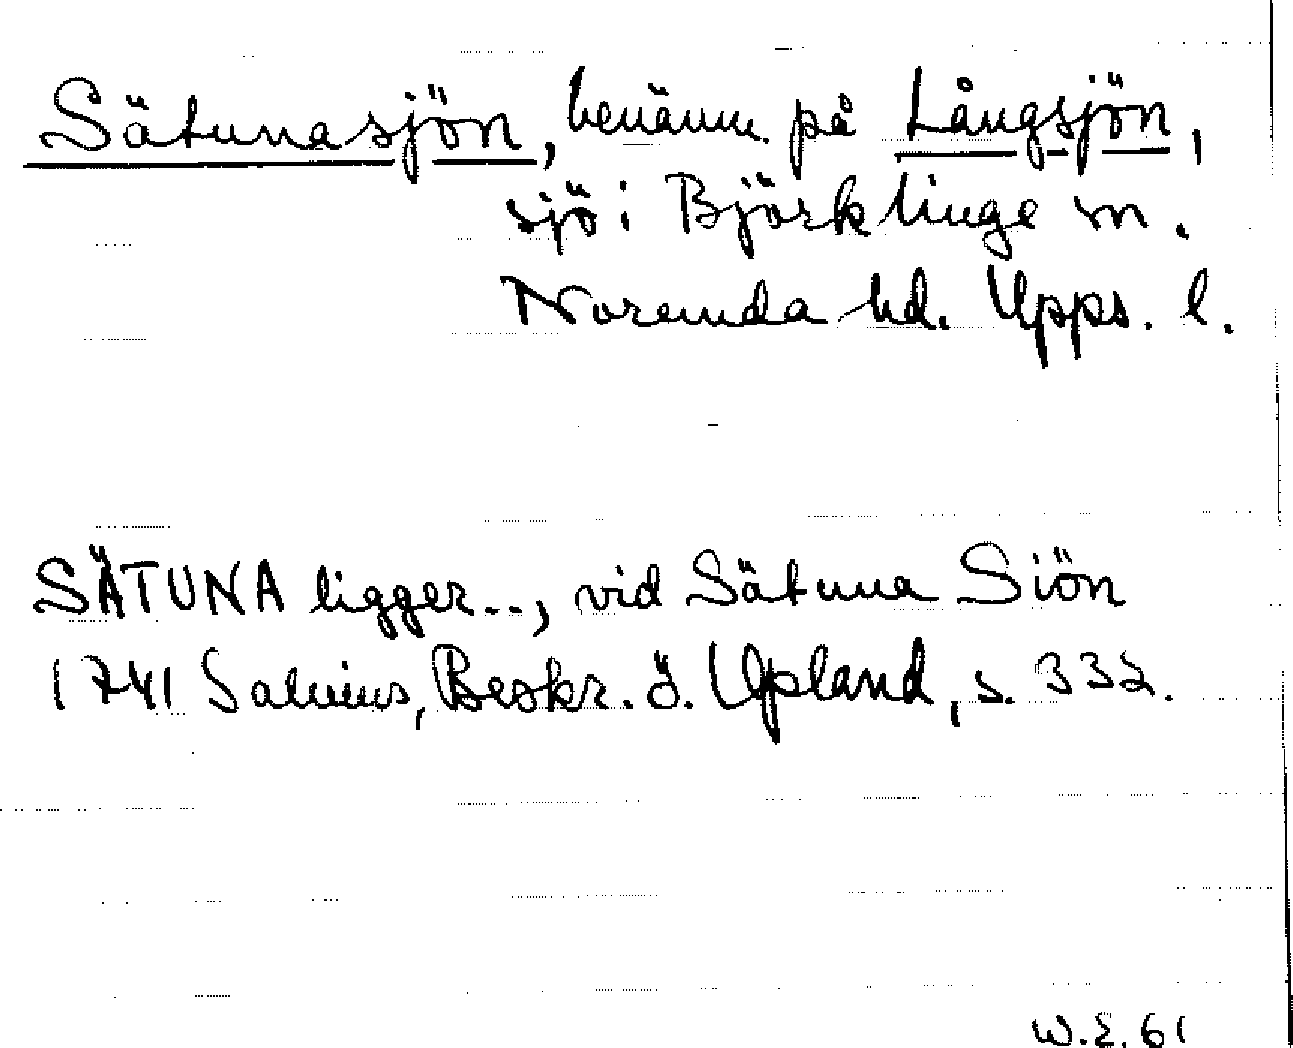 Sätunasjön, benämn. på Långsjön,
sjö i Björklinge sn.
Norunda hd. Upps. l.
SÄTUNA ligger.., vid Sätuna Siön
1741 Salvius, Beskr. ö. Upland, s. 332.
W.E. 61